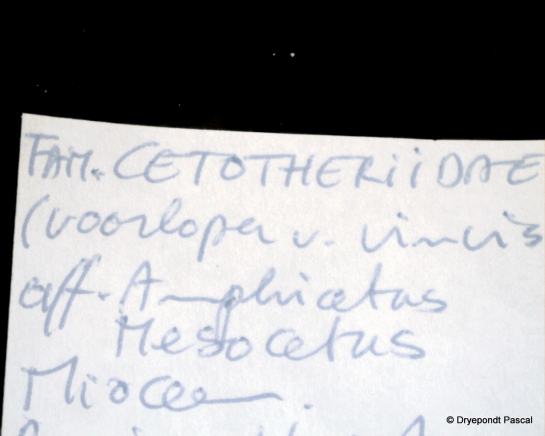 FAM. CETOTHERiiDAE
(voorloper v. vinvis
aff. Amphicetus
Mesocetus
Mioceen.
© Dryepondt Pascal